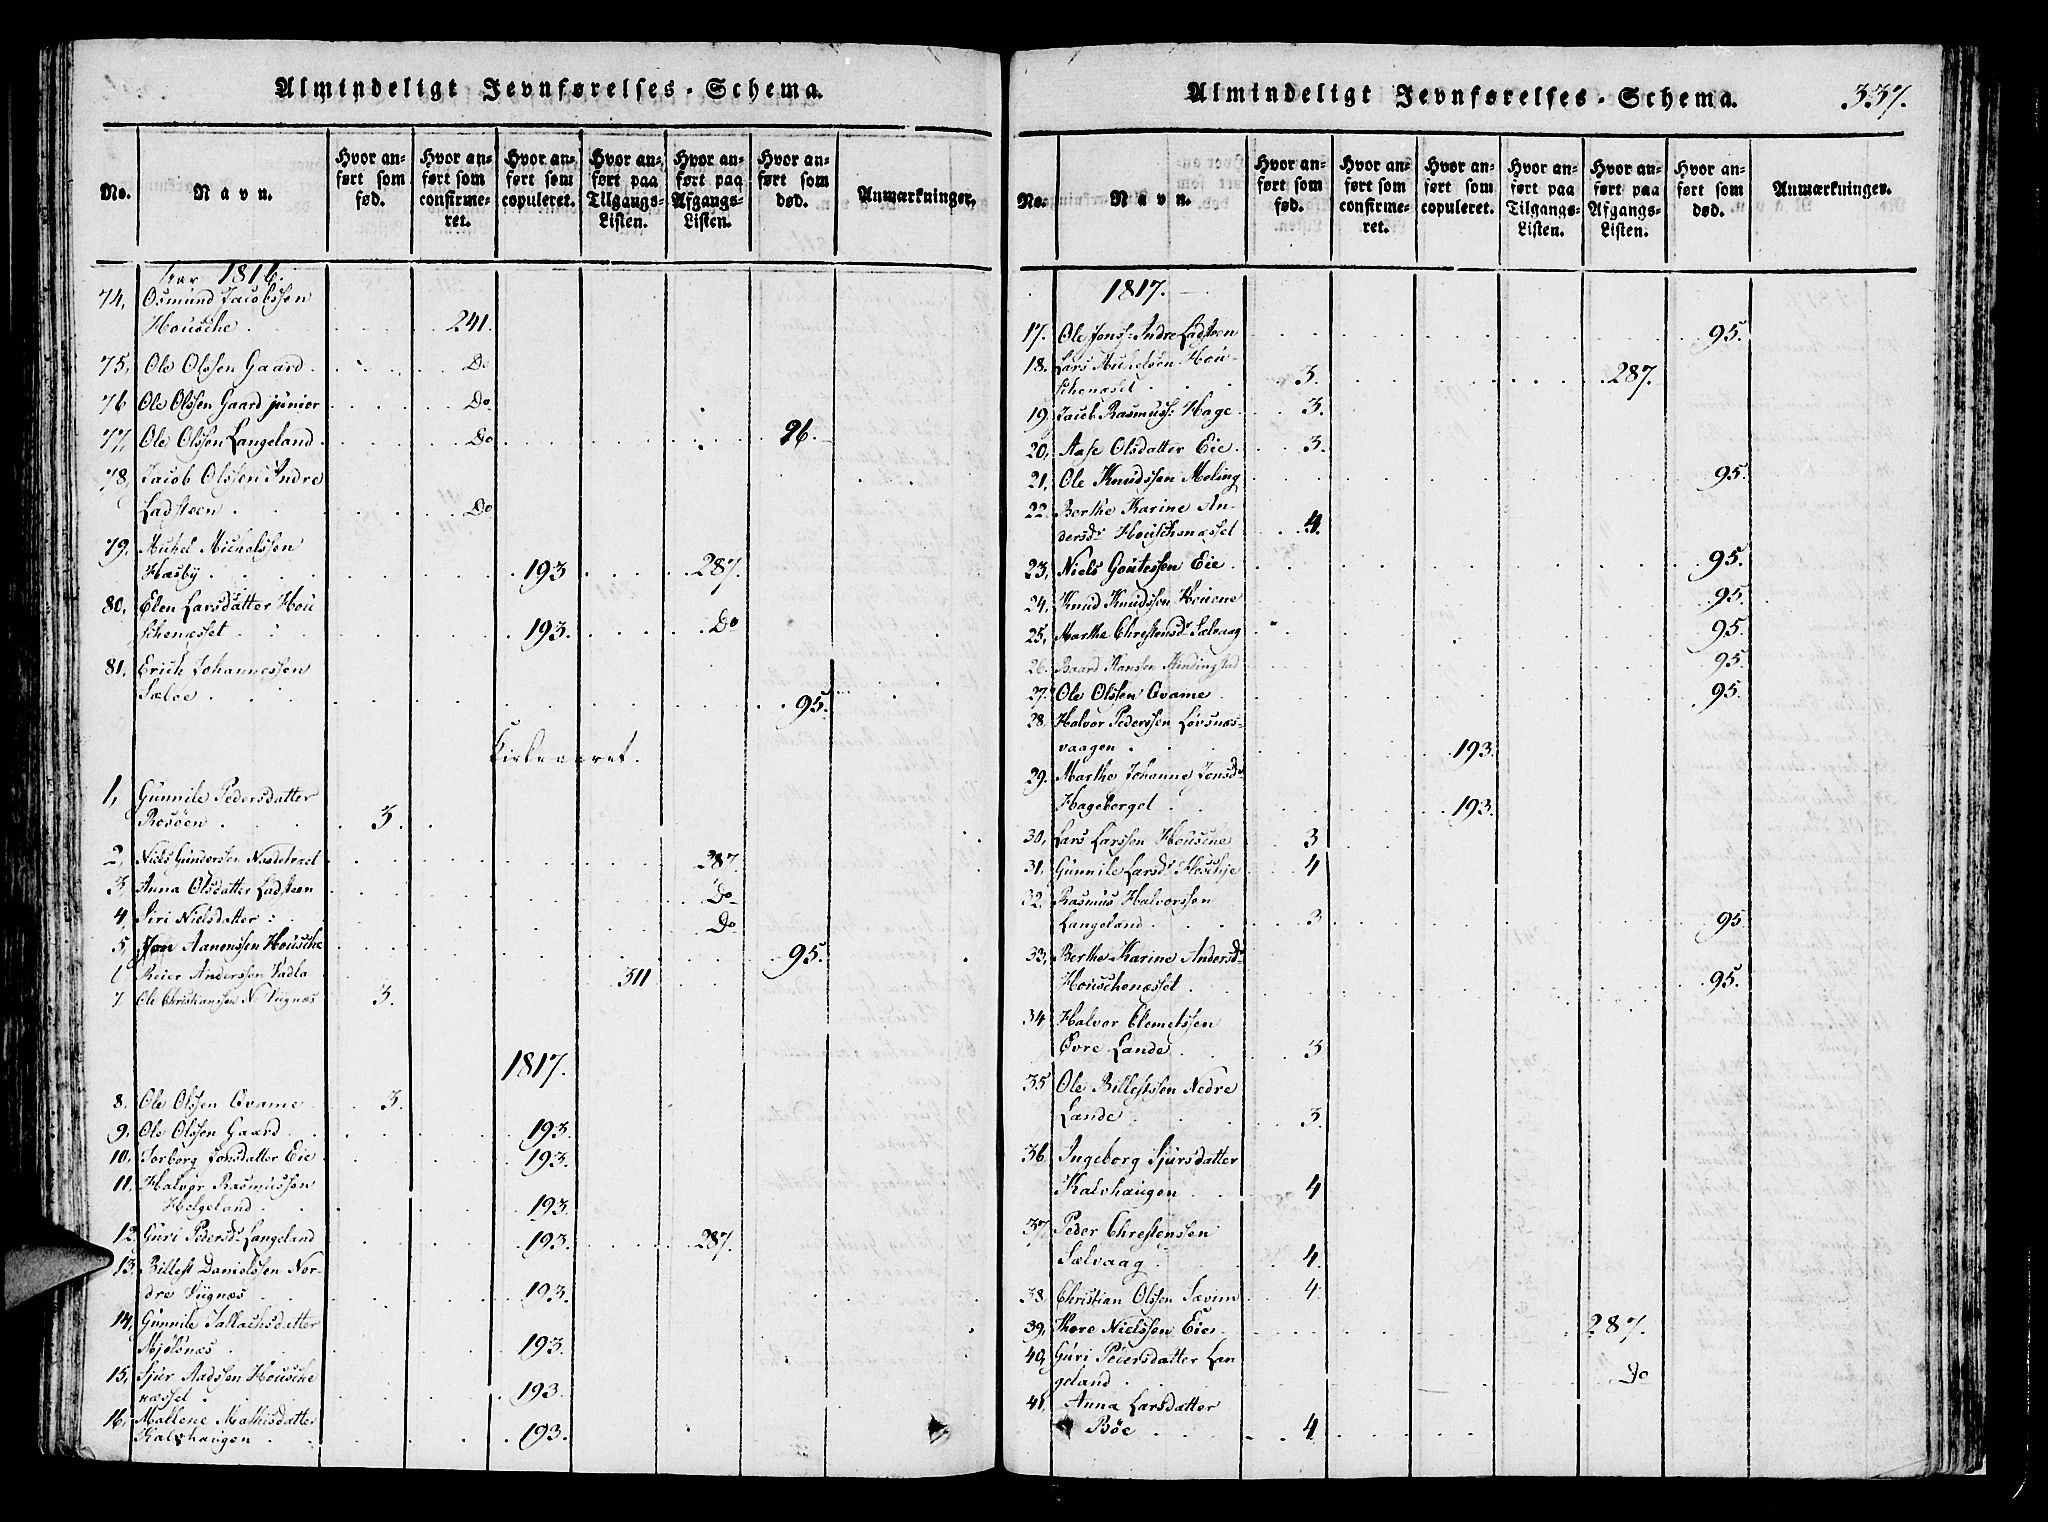 Almindeligt Jevnførelses-Schema.
No.
Navn.
Hvor anført som fød.
Hvor anført som confirmeret.
Hvor anført som copuleret.
Hvor anført paa Tilgangs-Listen.
Hvor anført paa Afgangs-Listen.
Hvor anført som død.
Anmærkninger.
1816.
74, Osmund Jacobssen
Housche 241.
75, Ole Olssen Gaard Do
76 Ole Olssen Gaard junior Do
77, Ole Olssen Langeland Do 96.
78, Jacob Olssen Indre
Ladsteen Do
79, Michel Michelssen
Hæsby 193 287.
80, Elen Larsdatter Hou
schenæsset 193. Do
81, Erich Johannessen
Sæloe 95.
Kirkeaaret.
1, Gunnile Pedersdatter
Rosøen 3.
2, Niels Gundersen 287.
3, Anna Olsdatter Ladsteen Do
4, Siri Nielsdatter Do
5, Jon Aanenssen Housche 95.
6 Reier Anderssen Vadla 311
7, Ole Christianssen N. Viignæs 3.
1817.
8. Ole Olssen Qvame 3.
9, Ole Olssen Gaard 193.
10, Torborg Jonsdatter Eie 193.
11, Halvor Rasmussen
Helgeland 193.
12, Guri Pedersdr Langeland 193. 287.
13, Billest Danielssen Nor-
dre Viignæs 193.
14, Gunnile Tallachsdatter
Mjølsnæs 193.
15, Sjur Aadssen Housche
næsset 193.
16, Mallene Mathisdatter
Kalvhaugen 193.
Almindeligt Jevnførelses-Schema.
337.
No.
Navn.
Hvor anført som fød.
Hvor anført som confirmeret.
Hvor anført som copuleret.
Hvor anført paa Tilgangs-Listen.
Hvor anført paa Afgangs-Listen.
Hvor anført som død.
Anmærkninger.
1817.
17. Ole Jons: Indre Ladsteen 95.
18. Lars Michelsen Hou-
schenæset 3. 287.
19, Jacob Rasmus: Hage 3.
20, Aase Olsdatter Eie 3.
21, Ole Knudssen Meling 95.
22. Berthe Karine An-
dersdr Houschenæsset 4.
23, Niels Goutessen Eie 95.
24, Knud Knudssen Houene 95.
25, Marthe Chrestensdr Sælvaag 95.
26. Baard Hansen Hindingstad 95.
27, Ole Olssen Qvame 95.
28. Halvor Pederssen Løvsnæs-
vaagen 193.
29. Marthe Johanne Jonsdr
Hageberget 193.
30, Lars Larssen Housche 3
31, Gunnile Larsdr Houschje 4
32. Rasmus Halvorssen
Langeland 3 95
33, Berthe Karine Andersdr
Houschenæsset 95.
34 Halvor Clemetssen
Øvre Lande 3
35 Ole Billestssen Nedre
Lande 3.
36, Ingeborg Sjursdatter
Kalvhaugen 4
37, Peder Chrestenssen
Sælvaag 4.
38, Christian Olssen Sævim 4
39, Thore Nielssen Eie 287.
40, Guri Pedersdatter Lan
geland Do
41, Anna Larsdatter
Bøe 4